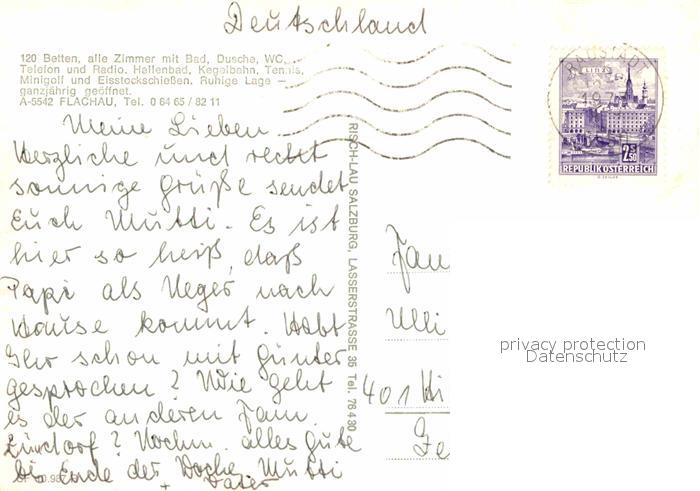 Deutschland
120 Betten, alle Zimmer mit Bad, Dusche, WC,
Telefon und Radio. Hallenbad, Kegelbahn, Tennis,
Minigolf und Eisstockschießen. Ruhige Lage –
ganzjährig geöffnet.
A-5542 FLACHAU, Tel. 0 64 65 / 82 11
Meine Lieben
Herzliche und recht
sonnige Grüße sendet
Euch Mutti. Es ist
hier so heiß, daß
Papi als Neger nach
Hause kommt. Habt
Ihr schon mit Günter
gesprochen? Wie geht
es der anderen Fam.
? Nochm. alles Gute
bis Ende der Woche Mutti
+ Vater
RISCH-LAU SALZBURG, LASSERSTRASSE 35 Tel. 76 4 80
LINZ
2.50
REPUBLIK ÖSTERREICH
Fam
Ulli
401 Hi
privacy protection
Datenschutz